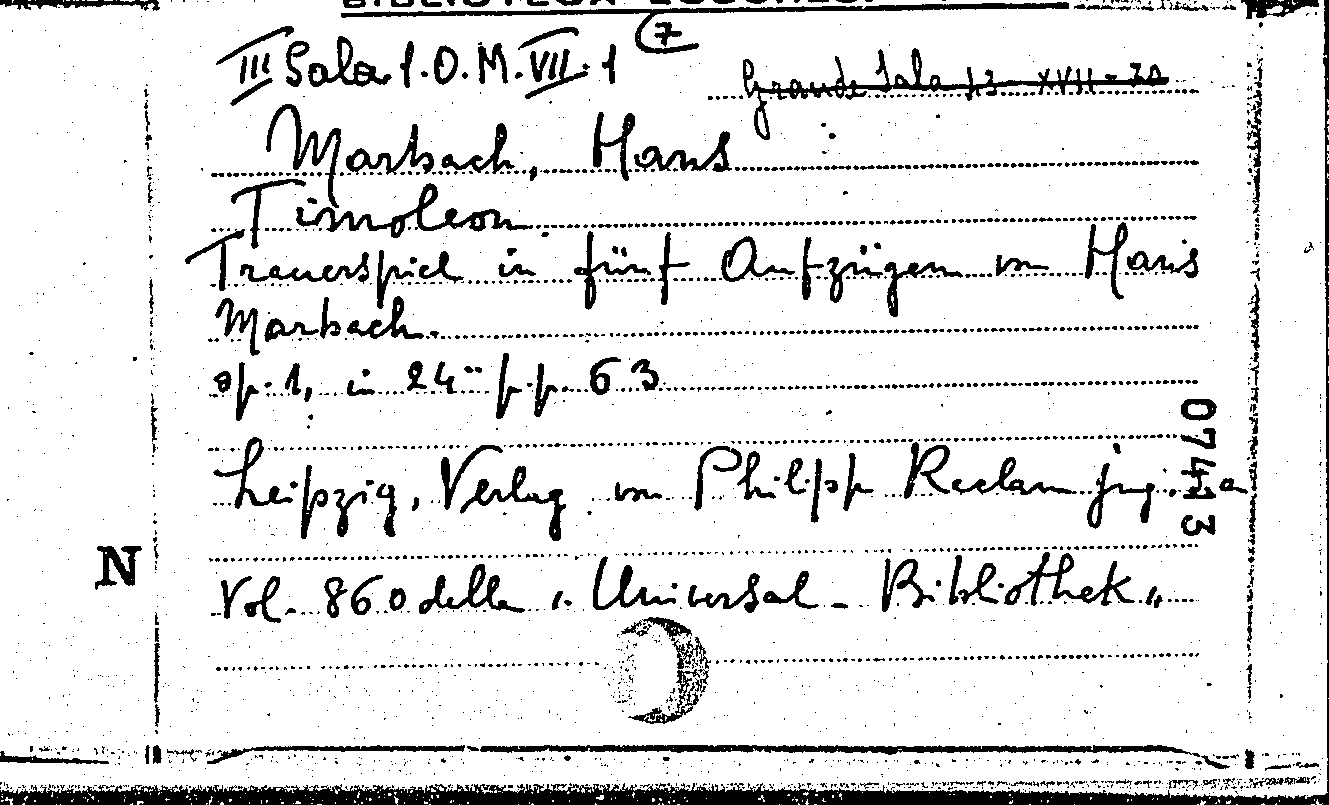 III Sala 1.O.M.VII.1 (7
Grande Sala 13-XVII-30
Marbach, Hans
Timoleon.
Trauerspiel in fünf Aufzügen von Hans
Marbach.
op. 1, in 24° pp. 63
Leipzig, Verlag von Philipp Reclam jug. s.a
07443
N
Vol. 860 della „Universal-Bibliothek„